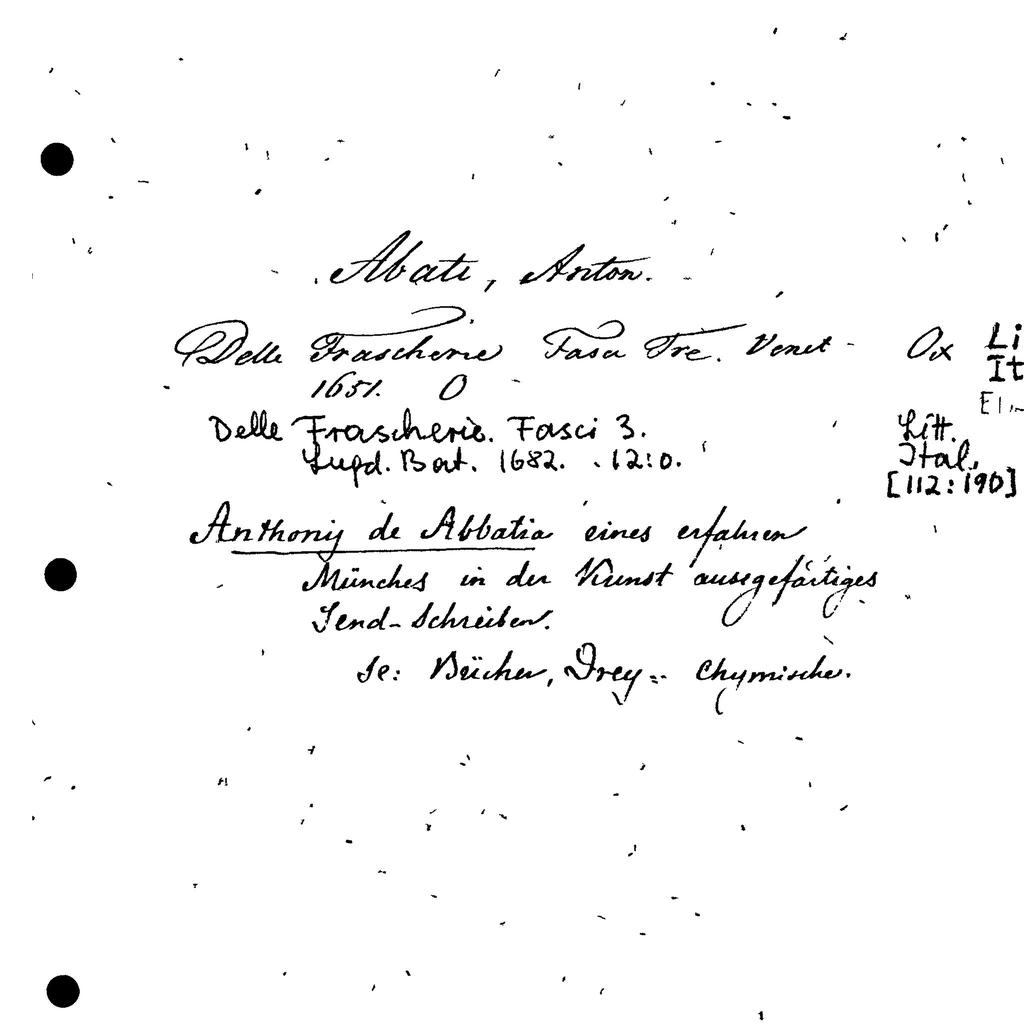 Abati, Anton.
Delle Frascherie Fasci Tre. Venet Ox Li
1651. O It
Delle Frascherie. Fasci 3. Litt.
Lugd. Bat. 1682. 12:o. Ital.
[112:190]
Anthonij de Abbatia eines erfahren
Münches in der Kunst ausgefärtiges
Send-Schreiben.
Se: Bücher, Drey-- Chymische.